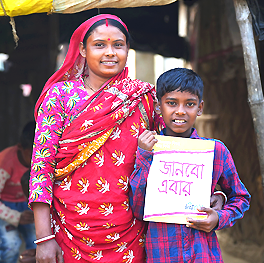 জানবো
এবার